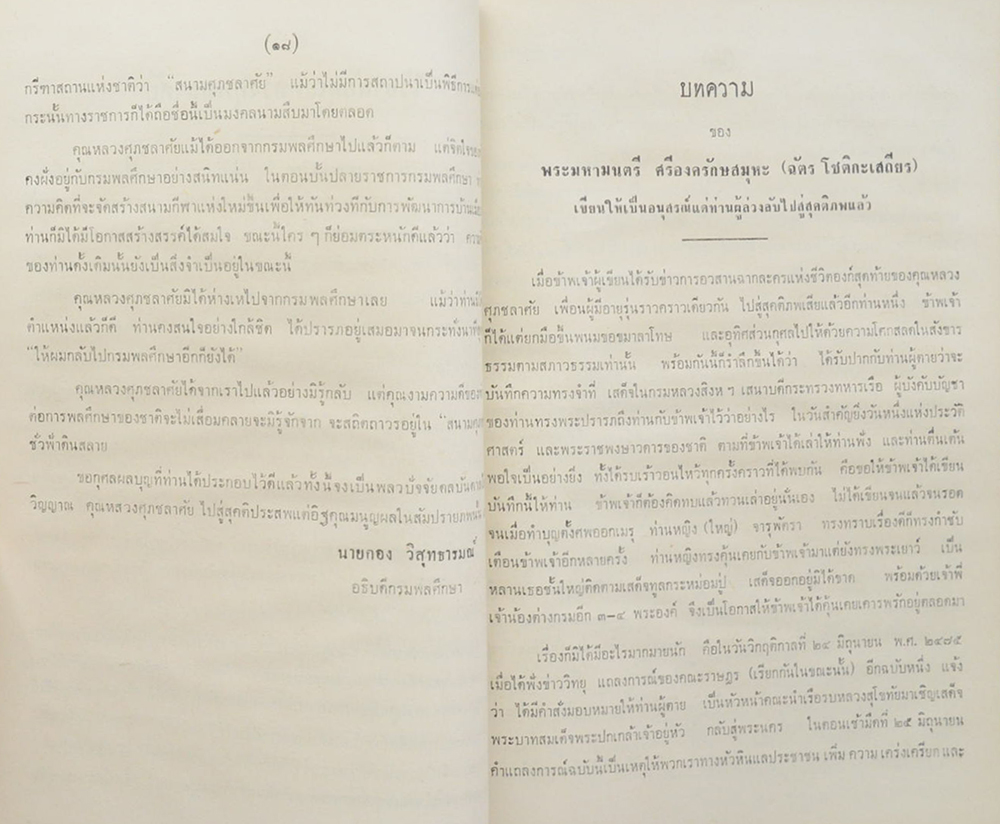 (๑๘)
กรีฑาสถานแห่งชาติว่า “สนามศุภชลาศัย” แม้ว่าไม่มีการสถาปนาเป็นพิธีการ
กระนั้นทางราชการก็ได้ถือชื่อนี้เป็นมงคลนามสืบมาโดยตลอด
คุณหลวงศุภชลาศัยแม้ได้ออกจากกรมพลศึกษาไปแล้วก็ตาม แต่จิตใจ
คงฝังอยู่กับกรมพลศึกษาอย่างสนิทแน่น ในตอนบั้นปลายราชการกรมพลศึกษา
ความคิดที่จะจัดสร้างสนามกีฬาแห่งใหม่ขึ้นเพื่อให้ทันท่วงทีกับการพัฒนาการบ้าน
ท่านก็มิได้มีโอกาสสร้างสรรค์ได้สมใจ ขณะนี้ใคร ๆ ก็ย่อมตระหนักดีแล้วว่า
ของท่านดั้งเดิมนั้นยังเป็นสิ่งจำเป็นอยู่ในขณะนี้
คุณหลวงศุภชลาศัยมิได้ห่างเหไปจากกรมพลศึกษาเลย แม้ว่าท่าน
ตำแหน่งแล้วก็ดี ท่านคงสนใจอย่างใกล้ชิด ได้ปรารภอยู่เสมอมาจนกระทั่ง
“ให้ผมกลับไปกรมพลศึกษาอีกก็ยังได้”
คุณหลวงศุภชลาศัยได้จากเราไปแล้วอย่างมิรู้กลับ แต่คุณงามความดีของ
ต่อการพลศึกษาของชาติจะไม่เสื่อมคลายจะมิรู้จักจาก จะสถิตถาวรอยู่ใน “สนาม
ชั่วฟ้าดินสลาย
ขอกุศลผลบุญที่ท่านได้ประกอบไว้ดีแล้วทั้งนี้จงเป็นพลวปัจจัยดลบันดาล
วิญญาณ คุณหลวงศุภชลาศัย ไปสู่สุคติประสพแต่อิฐคุณมนูญผลในสัมปรายภพ
นายกอง วิสุทธารมณ์
อธิบดีกรมพลศึกษา
บทความ
ของ
พระมหามนตรี ศรีองครักษสมุหะ (ฉัตร โชติกะเสถียร)
เขียนให้เป็นอนุสรณ์แด่ท่านผู้ล่วงลับไปสู่สุคติภพแล้ว
เมื่อข้าพเจ้าผู้เขียนได้รับข่าวการอวสานฉากละครแห่งชีวิตองก์สุดท้ายของคุณหลวง
ศุภชลาศัย เพื่อนผู้มีอายุรุ่นราวคราวเดียวกัน ไปสู่สุคติภพเสียแล้วอีกท่านหนึ่ง ข้าพเจ้า
ก็ได้แต่ยกมือขึ้นพนมขอขมาลาโทษ และอุทิศส่วนกุศลไปให้ด้วยความโศกสลดในสังขาร
ธรรมตามสภาวธรรมเท่านั้น พร้อมกันนี้ก็รำลึกขึ้นได้ว่า ได้รับปากกับท่านผู้ตายว่าจะ
บันทึกความทรงจำที่ เสด็จในกรมหลวงสิงห ฯ เสนาบดีกระทรวงทหารเรือ ผู้บังคับบัญชา
ของท่านทรงพระปรารภถึงท่านกับข้าพเจ้าไว้ว่าอย่างไร ในวันสำคัญยิ่งวันหนึ่งแห่งประวัติ
ศาสตร์ และพระราชพงษาวดารของชาติ ตามที่ข้าพเจ้าได้เล่าให้ท่านฟัง และท่านตื่นเต้น
พอใจเป็นอย่างยิ่ง ทั้งได้รบเร้าวอนไหว้ทุกครั้งคราวที่ได้พบกัน คือขอให้ข้าพเจ้าได้เขียน
บันทึกนี้ให้ท่าน ข้าพเจ้าก็ต้องคิดทบแล้วทวนเล่าอยู่นั่นเอง ไม่ได้เขียนจนแล้วจนรอด
จนเมื่อทำบุญตั้งศพออกเมรุ ท่านหญิง (ใหญ่) จารุพัตรา ทรงทราบเรื่องดีก็ทรงกำชับ
เตือนข้าพเจ้าอีกหลายครั้ง ท่านหญิงทรงคุ้นเคยกับข้าพเจ้ามาแต่ยังทรงพระเยาว์ เป็น
หลานเธอชั้นใหญ่ติดตามเสด็จทูลกระหม่อมปู่ เสด็จออกอยู่มิได้ขาด พร้อมด้วยเจ้าพี่
เจ้าน้องต่างกรมอีก ๓–๔ พระองค์ จึงเป็นโอกาสให้ข้าพเจ้าได้คุ้นเคยเคารพรักอยู่ตลอดมา
เรื่องก็มิได้มีอะไรมากมายนัก คือในวันวิกฤติกาลที่ ๒๔ มิถุนายน พ.ศ. ๒๔๗๕
เมื่อได้ฟังข่าววิทยุ แถลงการณ์ของคณะราษฎร (เรียกกันในขณะนั้น) อีกฉบับหนึ่ง แจ้ง
ว่า ได้มีคำสั่งมอบหมายให้ท่านผู้ตาย เป็นหัวหน้าคณะนำเรือรบหลวงสุโขทัยมาเชิญเสด็จ
พระบาทสมเด็จพระปกเกล้าเจ้าอยู่หัว กลับสู่พระนคร ในตอนเช้ามืดที่ ๒๕ มิถุนายน
คำแถลงการณ์ฉบับนี้เป็นเหตุให้พวกเราทางหัวหินแลประชาชน เพิ่ม ความ เคร่งเครียด และ